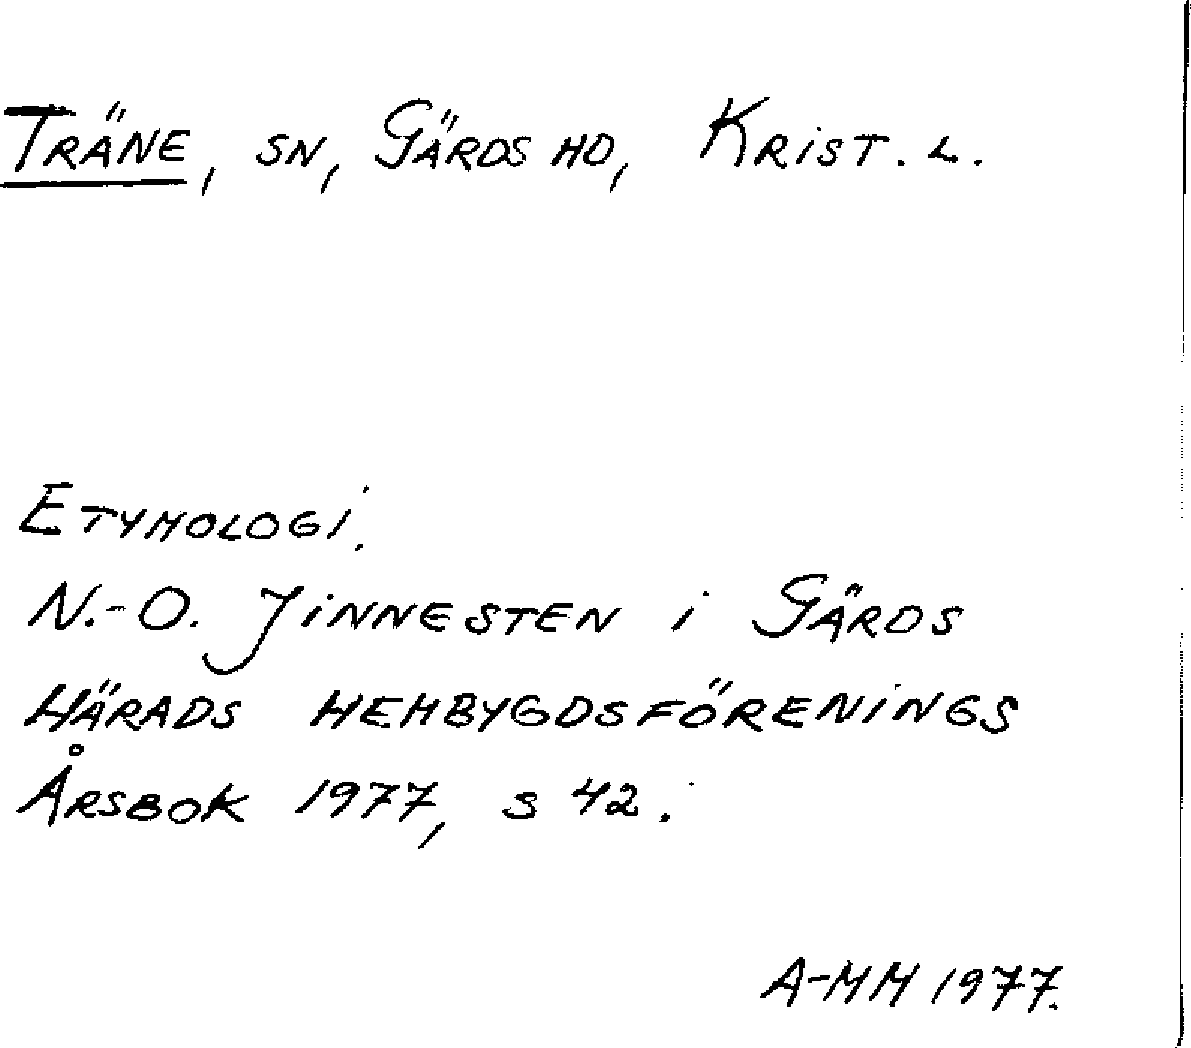 TRÄNE, SN, GÄRDS HD, KRIST. L.
ETYMOLOGI.
N.-O. JINNESTEN I GÄRDS
HÄRADS HEMBYGDSFÖRENINGS
ÅRSBOK 1977, S 42.
A-MM 1977.